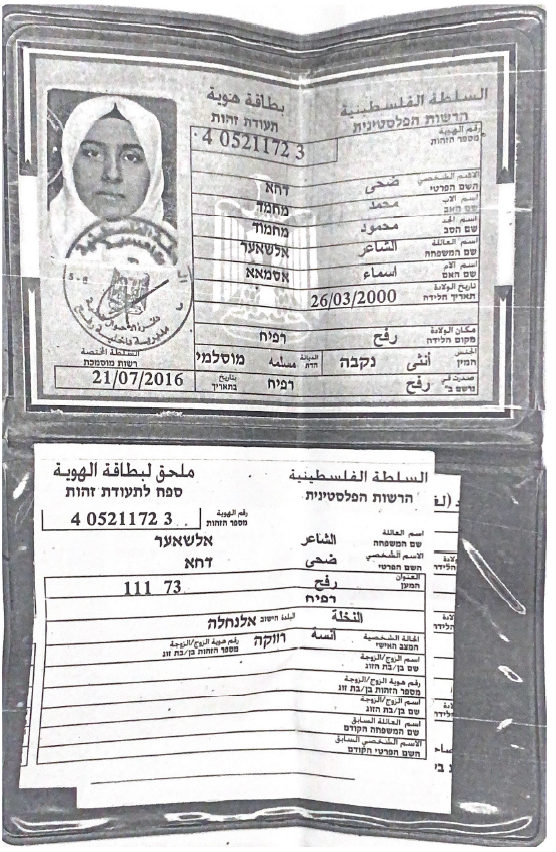 السلطة الفلسطينية
הרשות הפלסטינית
بطاقة هوية
תעודת זהות
رقم الهوية
מספר הזהות
4 0521172 3
الاسم الشخصي
השם הפרטי
ضحى
דחא
اسم الاب
שם האב
محمد
מחמד
اسم الجد
שם הסב
محمود
מחמוד
اسم العائلة
שם המשפחה
الشاعر
אלשאער
اسم الام
שם האם
اسماء
אסמאא
تاريخ الولادة
תאריך הלידה
26/03/2000
مكان الولادة
מקום הלידה
رفح
רפיח
الجنس
המין
أنثى
נקבה
الديانة
הדת
مسلمة
מוסלמי
صدرت في
נרשם ב'
رفح
רפיח
بتاريخ
בתאריך
السلطة المختصة
רשות מוסמכת
21/07/2016
السلطة الفلسطينية
הרשות הפלסטינית
ملحق لبطاقة الهوية
ספח לתעודת זהות
رقم الهوية
מספר הזהות
4 0521172 3
اسم العائلة
שם המשפחה
الشاعر
אלשאער
الاسم الشخصي
השם הפרטי
ضحى
דחא
العنوان
המען
رفح
111 73
רפיח
النخلة
البلدة הישוב
אלנחלה
الحالة الشخصية
המצב האישי
انسة
רווקה
رقم هوية الزوج/الزوجة
מספר הזהות בן/בת זוג
اسم الزوج/الزوجة
שם בן/בת הזוג
رقم هوية الزوج/الزوجة
מספר הזהות בן/בת זוג
اسم الزوج/الزوجة
שם בן/בת הזוג
اسم العائلة السابق
שם המשפחה הקודם
الاسم الشخصي السابق
השם הפרטי הקודם